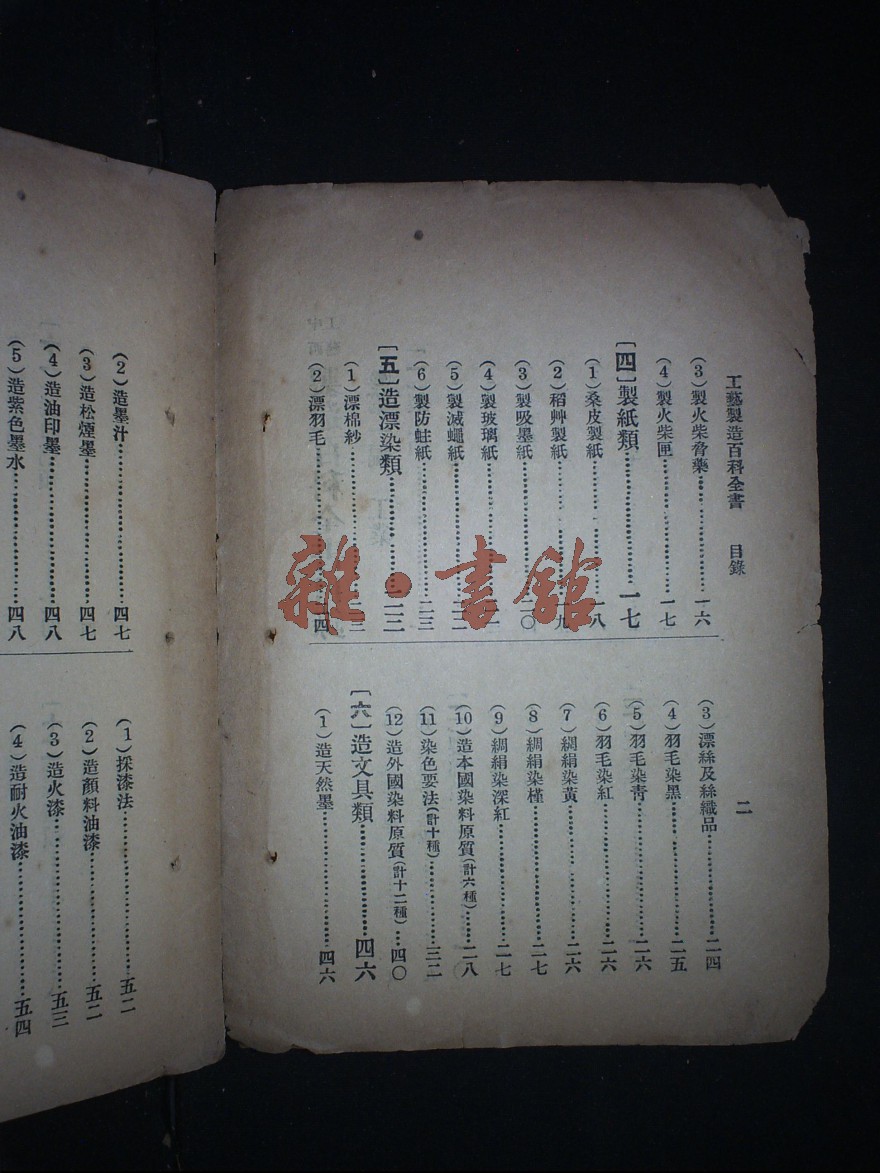 工藝製造百科全書　目錄　二
（3）製火柴脅藥……一六
（4）製火柴匣……一七
［四］製紙類……一七
（1）桑皮製紙……一八
（2）稻艸製紙……一九
（3）製吸墨紙……二〇
（4）製玻璃紙……
（5）製滅蠅紙……二二
（6）製防蛀紙……二三
［五］造漂染類……二三
（1）漂棉紗……二三
（2）漂羽毛……二四
（3）漂絲及絲織品……二四
（4）羽毛染黑……二五
（5）羽毛染靑……二六
（6）羽毛染紅……二六
（7）綢絹染黃……二六
（8）綢絹染槿……二七
（9）綢絹染深紅……二七
（10）造本國染料原質（計六種）……二八
（11）染色要法（計十種）……三二
（12）造外國染料原質（計十二種）……四〇
［六］造文具類……四六
（1）造天然墨……四六
（2）造墨汁……四七
（3）造松煙墨……四七
（4）造油印墨……四八
（5）造紫色墨水……四八
（1）採漆法……五二
（2）造顏料油漆……五二
（3）造火漆……五三
（4）造耐火油漆……五四
雜·書館